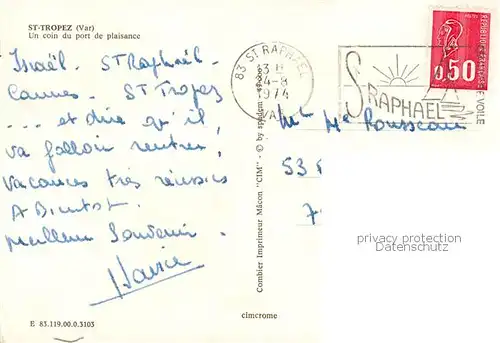 ST-TROPEZ (Var)
Un coin du port de plaisance
Israël. ST Raphaël.
Cannes. ST Tropez
... et dire qu'il
va falloir rentrer,
Vacances très réussies
A Bientot.
Meilleur Souvenir.
E 83.119.00.0.3103
Combier Imprimeur Mâcon "CIM" - © by spadem
cimcrome
83 ST RAPHAEL
13 H
24-8
1974
VAR
ST RAPHAEL
VOILE
REPUBLIQUE FRANÇAISE
0,50
Mr Me Rousseau
53
7
privacy protection
watermark